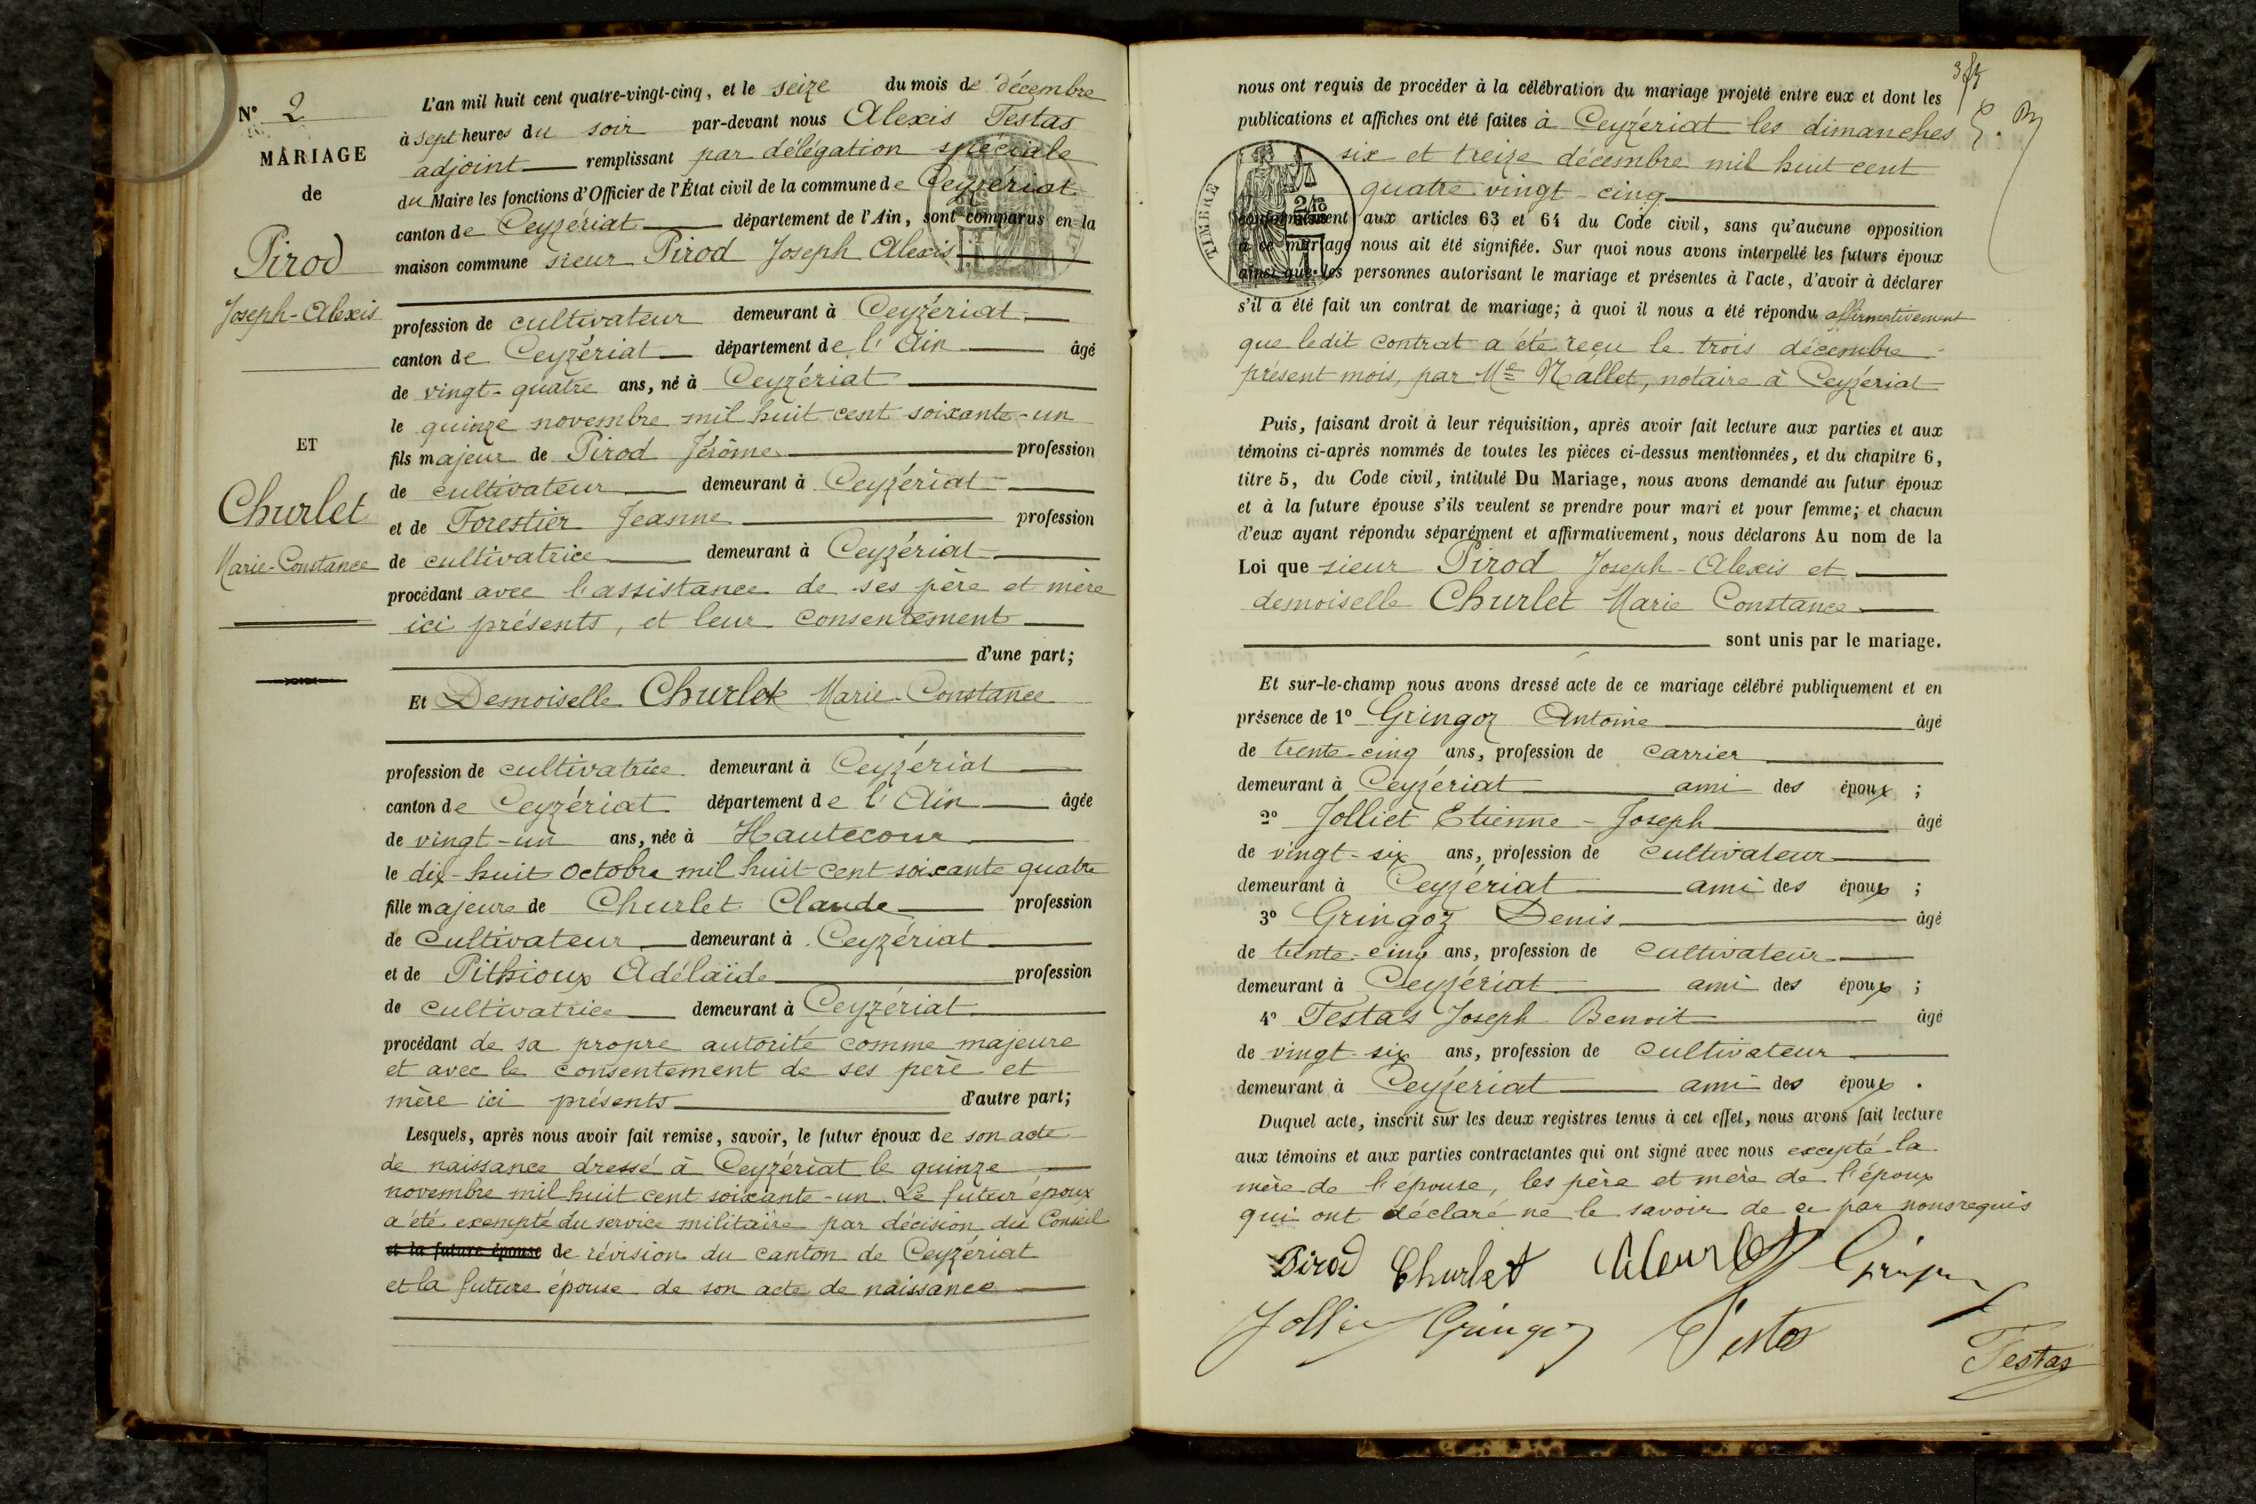 N° 2
MARIAGE
de
Pirod
Joseph-Alexis
ET
Churlet
Marie-Constance
L'an mil huit cent quatre-vingt-cinq, et le seize du mois de décembre
à sept heures du soir par-devant nous Alexis Testas
adjoint remplissant par délégation spéciale
du Maire les fonctions d'Officier de l'État civil de la commune de Ceyzériat
canton de Ceyzériat département de l'Ain, sont comparus en la
maison commune sieur Pirod Joseph Alexis
profession de cultivateur demeurant à Ceyzériat
canton de Ceyzériat département de l'Ain âgé
de vingt-quatre ans, né à Ceyzériat
le quinze novembre mil huit cent soixante-un
fils majeur de Pirod Jérôme profession
de cultivateur demeurant à Ceyzériat
et de Forestier Jeanne profession
de cultivatrice demeurant à Ceyzériat
procédant avec l'assistance de ses père et mère
ici présents, et leur consentement
d'une part;
Et Demoiselle Churlet Marie-Constance
profession de cultivatrice demeurant à Ceyzériat
canton de Ceyzériat département de l'Ain âgée
de vingt-un ans, née à Hautecour
le dix-huit octobre mil huit cent soixante quatre
fille majeure de Churlet Claude profession
de cultivateur demeurant à Ceyzériat
et de Pithioux Adélaïde profession
de cultivatrice demeurant à Ceyzériat
procédant de sa propre autorité comme majeure
et avec le consentement de ses père et
mère ici présents d'autre part;
Lesquels, après nous avoir fait remise, savoir, le futur époux de son acte
de naissance dressé à Ceyzériat le quinze
novembre mil huit cent soixante-un. Le futur époux
a été exempté du service militaire par décision du Conseil
et la future épouse de révision du canton de Ceyzériat
et la future épouse de son acte de naissance
nous ont requis de procéder à la célébration du mariage projeté entre eux et dont les
publications et affiches ont été faites à Ceyzériat les dimanches
six et treize décembre mil huit cent
quatre vingt-cinq
TIMBRE
conformément aux articles 63 et 64 du Code civil, sans qu'aucune opposition
à ce mariage nous ait été signifiée. Sur quoi nous avons interpellé les futurs époux
ainsi que les personnes autorisant le mariage et présentes à l'acte, d'avoir à déclarer
s'il a été fait un contrat de mariage; à quoi il nous a été répondu affirmativement
que ledit contrat a été reçu le trois décembre
présent mois, par Me Nallet, notaire à Ceyzériat
Puis, faisant droit à leur réquisition, après avoir fait lecture aux parties et aux
témoins ci-après nommés de toutes les pièces ci-dessus mentionnées, et du chapitre 6,
titre 5, du Code civil, intitulé Du Mariage, nous avons demandé au futur époux
et à la future épouse s'ils veulent se prendre pour mari et pour femme; et chacun
d'eux ayant répondu séparément et affirmativement, nous déclarons Au nom de la
Loi que sieur Pirod Joseph-Alexis et
demoiselle Churlet Marie Constance
sont unis par le mariage.
Et sur-le-champ nous avons dressé acte de ce mariage célébré publiquement et en
présence de 1° Gringoz Antoine âgé
de trente-cinq ans, profession de carrier
demeurant à Ceyzériat ami des époux ;
2° Jolliet Etienne-Joseph âgé
de vingt-six ans, profession de cultivateur
demeurant à Ceyzériat ami des époux ;
3° Gringoz Denis âgé
de trente-cinq ans, profession de cultivateur
demeurant à Ceyzériat ami des époux ;
4° Testas Joseph Benoit âgé
de vingt-six ans, profession de cultivateur
demeurant à Ceyzériat ami des époux .
Duquel acte, inscrit sur les deux registres tenus à cet effet, nous avons fait lecture
aux témoins et aux parties contractantes qui ont signé avec nous excepté la
mère de l'épouse, les père et mère de l'époux
qui ont déclaré ne le savoir de ce par nous requis
Pirod Churlet
Gringoz Testas